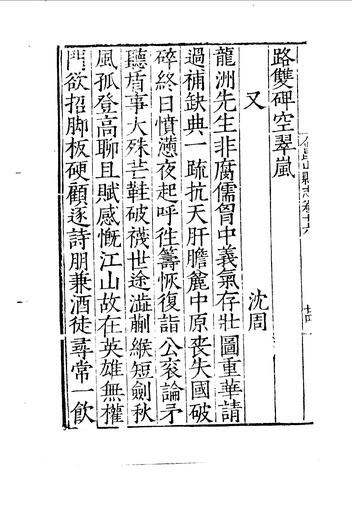 路雙碑空翠嵐
又　沈周
龍洲先生非腐儒胷中義氣存壯圖重華請
過補缺典一疏抗天肝膽麄中原喪失國破
碎終日憤懣夜起呼徃籌恢復詣公衮論矛
聽盾事大殊芒鞋破襪世途澁蒯緱短劍秋
風孤登高聊且賦感慨江山故在英雄無權
門欲招脚板硬顧逐詩朋兼酒徒尋常一飲